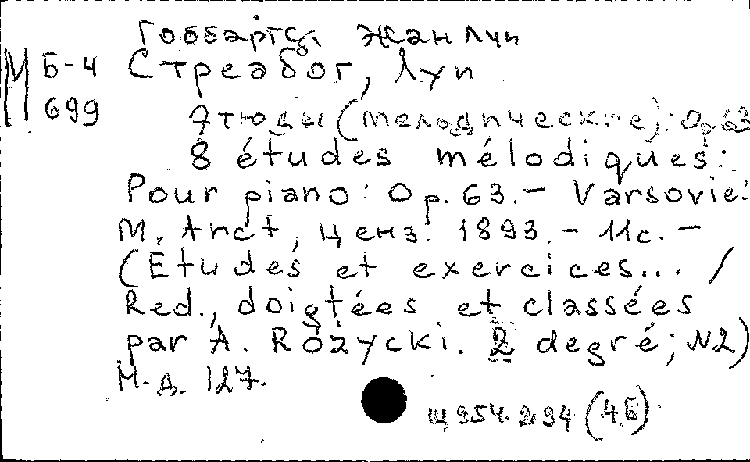 Гоббартс, Жан Луи
М Б-4 Стреабог, Луи
699 Этюды (мелодические): Op. 63
8 études mélodiques:
Pour piano: Op. 63. – Varsovie:
M. Arct, ценз. 1893. – 11с. –
(Etudes et exercices... /
Red., doigtées et classées
par A. Różycki. 2 degré; N2)
Н. Д. 127.
Ц 954-294 (4.Б)